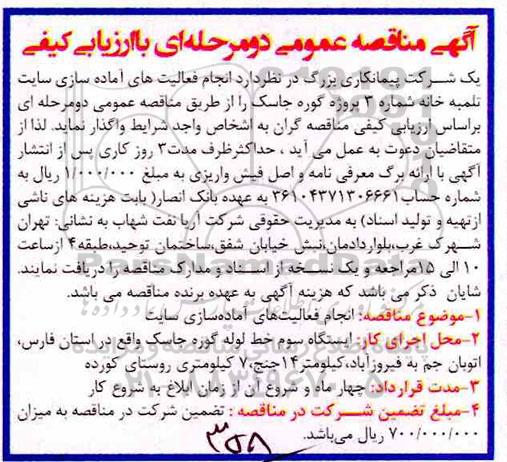 آگهی مناقصه عمومی دومرحله‌ای باارزیابی کیفی
یک شرکت پیمانکاری بزرگ در نظردارد انجام فعالیت های آماده سازی سایت
تلمبه خانه شماره ۳ پروژه گوره جاسک را از طریق مناقصه عمومی دومرحله ای
براساس ارزیابی کیفی مناقصه گران به اشخاص واجد شرایط واگذار نماید. لذا از
متقاضیان دعوت به عمل می آید ، حداکثرظرف مدت۳ روز کاری پس از انتشار
آگهی با ارائه برگ معرفی نامه و اصل فیش واریزی به مبلغ ۱/۰۰۰/۰۰۰ ریال به
شماره حساب۳۶۱۰۴۳۷۱۳۰۶۶۶۱ به عهده بانک انصار( بابت هزینه های ناشی
ازتهیه و تولید اسناد) به مدیریت حقوقی شرکت آریا نفت شهاب به نشانی: تهران
شهرک غرب،بلواردادمان،نبش خیابان شفق،ساختمان توحید،طبقه۴ ازساعت
۱۰ الی ۱۵مراجعه و یک نسخه از اسناد و مدارک مناقصه را دریافت نمایند.
شایان ذکر می باشد که هزینه آگهی به عهده برنده مناقصه می باشد.
۱-موضوع مناقصه: انجام فعالیت‌های آماده‌سازی سایت
۲-محل اجرای کار: ایستگاه سوم خط لوله گوره جاسک واقع در استان فارس،
اتوبان جم به فیروزآباد،کیلومتر۱۴جنج،۷ کیلومتری روستای کورده
۳-مدت قرارداد: چهار ماه و شروع آن از زمان ابلاغ به شروع کار
۴-مبلغ تضمین شرکت در مناقصه : تضمین شرکت در مناقصه به میزان
۷۰۰/۰۰۰/۰۰۰ ریال می‌باشد.
ParsNamadData